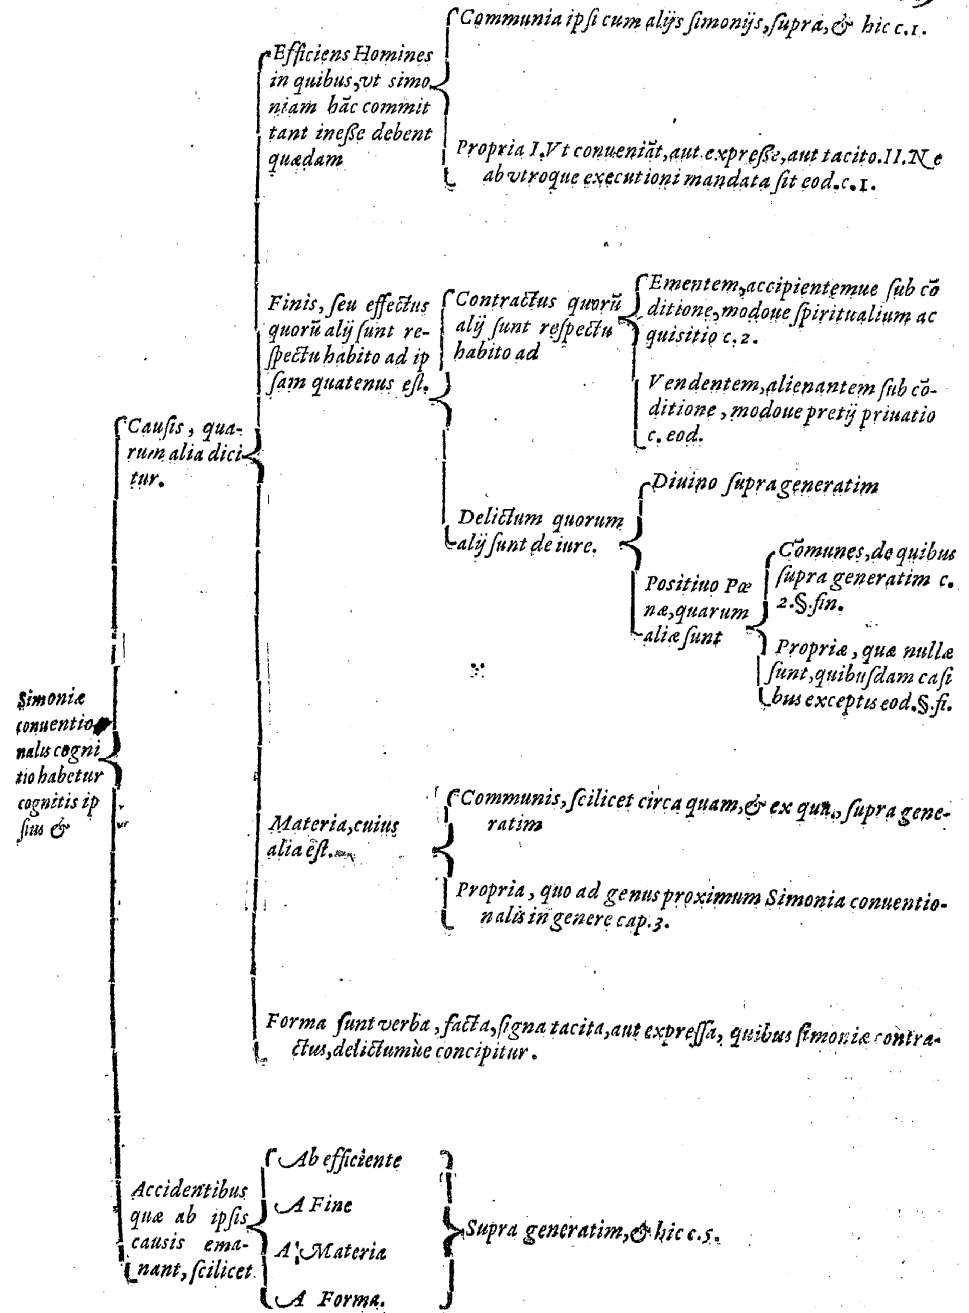 Simoniæ
conuentio
nalis cogni
tio habetur
cognitis ip
ſius &
Cauſis, qua-
rum alia dici
tur.
Efficiens Homines
in quibus, vt simo
niam hāc commit
tant ineſſe debent
quædam
Communia ipſi cum alijs ſimonijs, ſupra, & hic c.1.
Propria I.Vt conueniāt, aut expreſſe, aut tacito.II.Ne
ab vtroque executioni mandata ſit eod.c.1.
Finis, ſeu effectus
quorū alij ſunt re-
ſpectu habito ad ip
ſam quatenus eſt.
Contractus quorū
alij ſunt reſpectu
habito ad
Ementem, accipientemue ſub cō
ditione, modoue ſpiritualium ac
quisitio c.2.
Vendentem, alienantem ſub cō-
ditione, modoue pretij priuatio
c. eod.
Delictum quorum
alij ſunt de iure.
Diuino ſupra generatim
Poſitiuo Pœ
næ, quarum
aliæ ſunt
Cōmunes, de quibus
ſupra generatim c.
2.§.fin.
Propriæ, quæ nullæ
ſunt, quibuſdam caſi
bus exceptis eod.§.fi.
Materia, cuius
alia eſt.
Communis, ſcilicet circa quam, & ex qua, ſupra gene-
ratim
Propria, quo ad genus proximum Simonia conuentio-
nalis in genere cap.3.
Forma ſunt verba, facta, ſigna tacita, aut expreſſa, quibus ſimoniæ contra-
ctus, delictumùe concipitur.
Accidentibus
quæ ab ipſis
causis ema-
nant, ſcilicet
Ab efficiente
A Fine
A Materia
A Forma.
Supra generatim, & hic c.5.